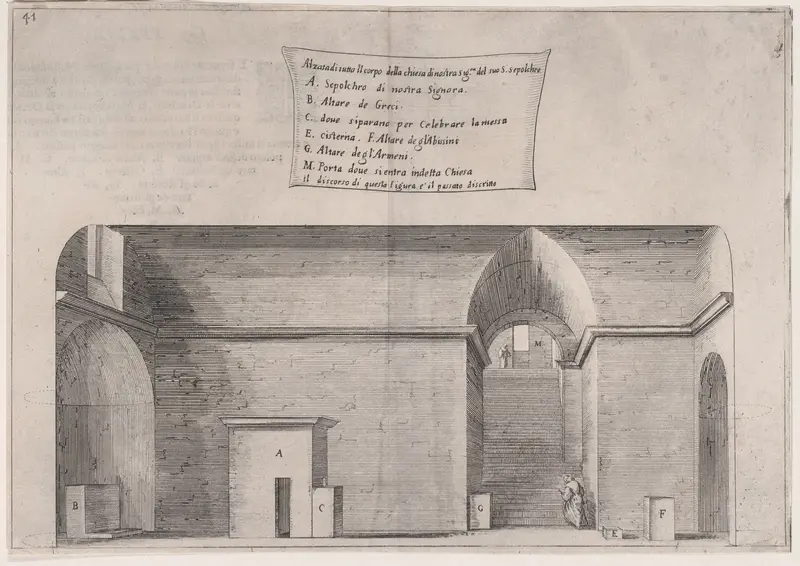 41
Alzata di tutto Il corpo della chiesa di nostra Sig.ra del suo S. sepolchro
A. Sepolchro di nostra Signora.
B. Altare de Greci.
C. doue siparano per Celebrare la messa
E. cisterna. F. Altare degl'Abusini
G. Altare degl'Armeni.
M. Porta doue sientra indetta Chiesa
il discorso di questa figura e' il passato discritto
M
A
B
C
G
E
F